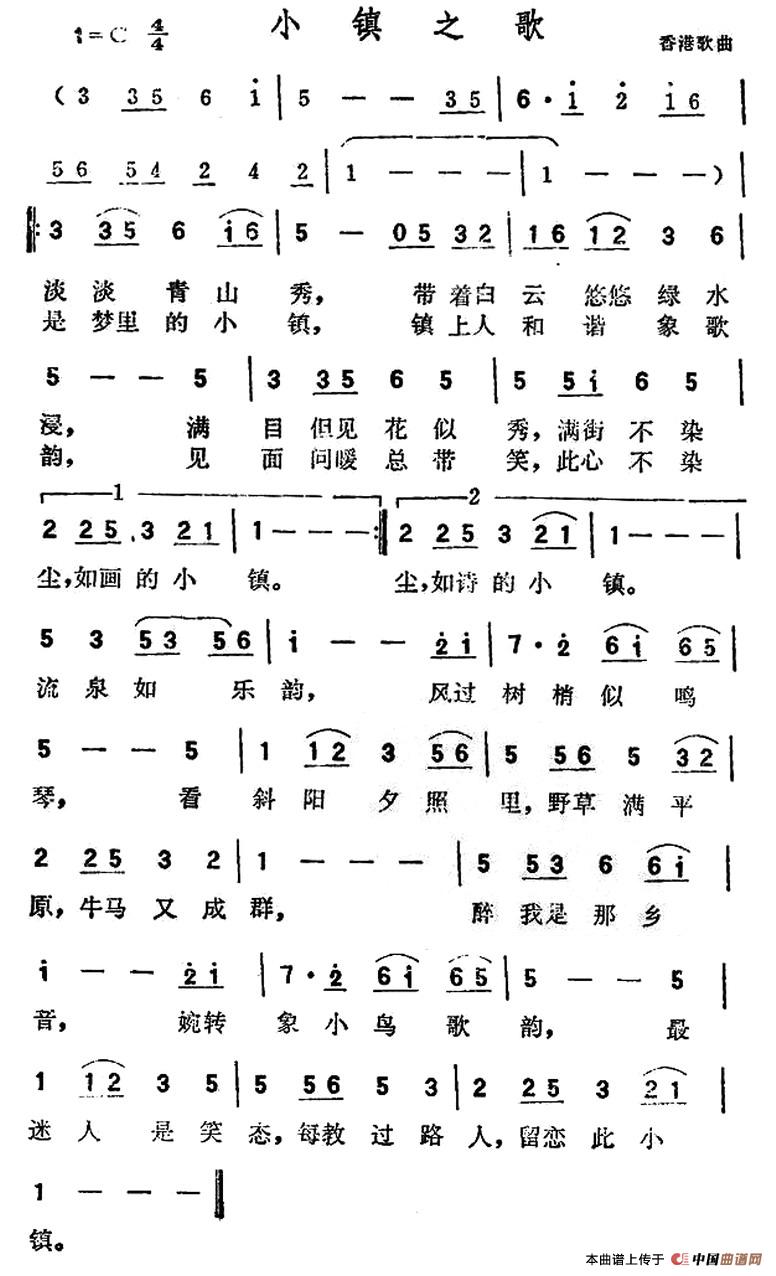 小镇之歌
1=C 4/4
香港歌曲
( 3 3 5 6 i | 5 - - 3 5 | 6 · i 2 i 6 |
5 6 5 4 2 4 2 | 1 - - - | 1 - - - ) |
‖: 3 3 5 6 i 6 | 5 - 0 5 3 2 | 1 6 1 2 3 6
淡淡青山秀，带着白云悠悠绿水
是梦里的小镇，镇上人和谐象歌
5 - - 5 | 3 3 5 6 5 | 5 5 i 6 5 |
浸，满目但见花似秀，满街不染
韵，见面问暖总带笑，此心不染
1 2
2 2 5 3 2 1 | 1 - - - :‖ 2 2 5 3 2 1 | 1 - - - |
尘，如画的小镇。尘，如诗的小镇。
5 3 5 3 5 6 | i - - 2 i | 7 · 2 6 i 6 5 |
流泉如乐韵，风过树梢似鸣
5 - - 5 | 1 1 2 3 5 6 | 5 5 6 5 3 2 |
琴，看斜阳夕照里，野草满平
2 2 5 3 2 | 1 - - - | 5 5 3 6 6 i |
原，牛马又成群，醉我是那乡
i - - 2 i | 7 · 2 6 i 6 5 | 5 - - 5 |
音，婉转象小鸟歌韵，最
1 1 2 3 5 | 5 5 6 5 3 | 2 2 5 3 2 1 |
迷人是笑态，每教过路人，留恋此小
1 - - - ‖
镇。
本曲谱上传于 中国曲谱网